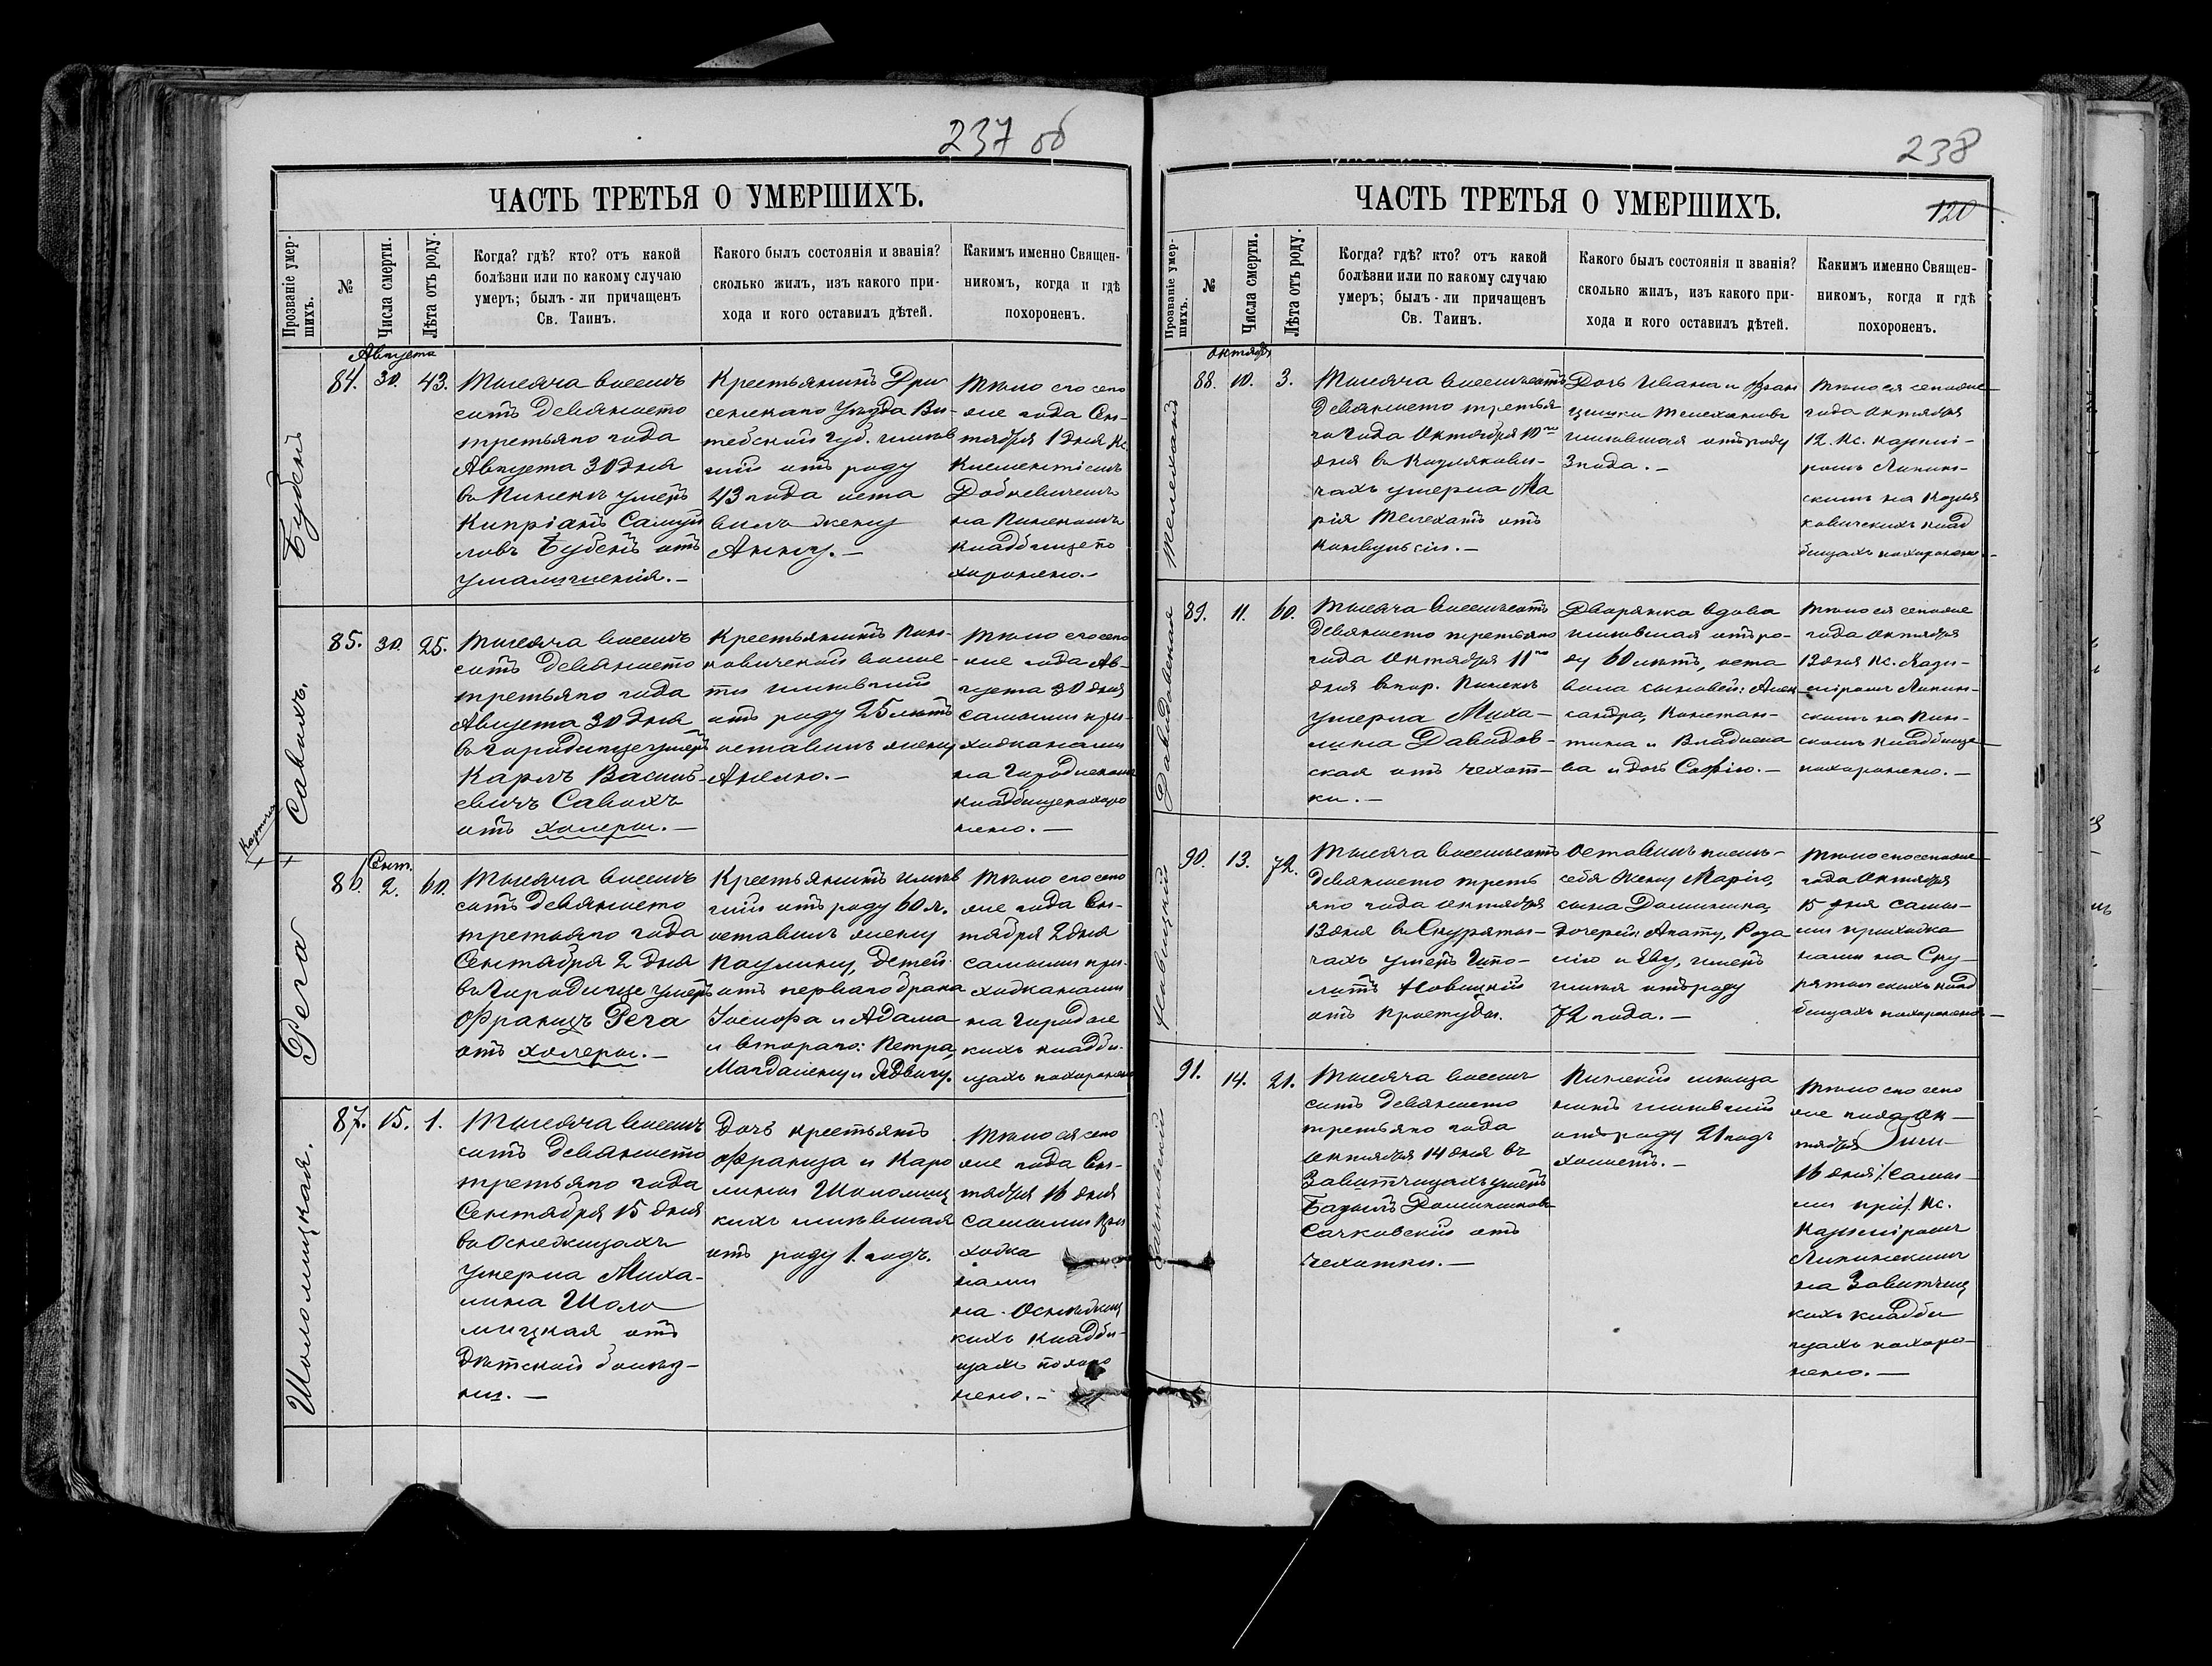 237 об
ЧАСТЬ ТРЕТЬЯ О УМЕРШИХЪ.
Прозваніе умер-
шихъ.
№
Числа смерти.
Лѣта отъ роду.
Когда? гдѣ? кто? отъ какой
болѣзни или по какому случаю
умеръ; былъ-ли причащенъ
Св. Таинъ.
Какого былъ состоянія и званія?
сколько жилъ, изъ какого при-
хода и кого оставилъ дѣтей.
Какимъ именно Священ-
никомъ, когда и гдѣ
похороненъ.
Августа
84. 30. 43.
Тысяча восемь
сотъ девяносто
третьяго года
Августа 30 дня
въ Пинскѣ умеръ
Кипріанъ Самуй
ловъ отъ
Крестьянинъ Дри
сенскаго Уѣзда Ви-
тебской Губ. жив
шій отъ роду
43 года оста
вилъ жену
Анну.—
Тѣло его сего
же года Сен-
тября 1 дня Кс.
Климентіемъ
на Пинскомъ
кладбище по
хоронено.—
Савихъ.
85. 30. 25.
Тысяча восемь
сотъ девяносто
третьяго года
Августа 30 дня
въ Городище умеръ
Карлъ Василь-
евичъ Савихъ
отъ холеры.—
Крестьянинъ Пин-
ковичской волос-
ти жившій
отъ роду 25 лѣтъ
оставилъ жену
Анелю.—
Тѣло его сего
же года Ав-
густа 30 дня
самыми при-
хожанами
на Городискомъ
кладбище похоро
нено.—
Рега
Сент.
86. 2. 60.
Тысяча восемь
сотъ девяносто
третьяго года
Сентября 2 дня
въ Городище умеръ
Францъ Рега
отъ холеры.—
Крестьянинъ жив
шій отъ роду 60 л.
оставилъ жену
Паулину, дѣтей
отъ перваго брака
Іосифа и Адама
и втораго: Петра,
Магдалену и Ядвигу.
Тѣло его сего
же года Сен-
тября 2 дня
самыми при-
хожанами
на Городис
кихъ кладби-
щахъ похоронено
Шоломицкая.
87. 15. 1.
Тысяча восемь
сотъ девяносто
третьяго года
Сентября 15 дня
въ Оснежицахъ
умерла Миха-
лина Шоло
мицкая отъ
дѣтской болѣз-
ни.—
Дочь крестьянъ
Франца и Каро
лины Шоломиц
кихъ жившая
отъ роду 1. годъ.
Тѣло ея сего
же года Сен-
тября 16 дня
самыми при
хожа
нами
на Оснѣжиц
кихъ кладби-
щахъ похоро
нено.—
238
120
ЧАСТЬ ТРЕТЬЯ О УМЕРШИХЪ.
Прозваніе умер-
шихъ.
№
Числа смерти.
Лѣта отъ роду.
Когда? гдѣ? кто? отъ какой
болѣзни или по какому случаю
умеръ; былъ-ли причащенъ
Св. Таинъ.
Какого былъ состоянія и званія?
сколько жилъ, изъ какого при-
хода и кого оставилъ дѣтей.
Какимъ именно Священ-
никомъ, когда и гдѣ
похороненъ.
Телеханъ
Октября
88. 10. 3.
Тысяча восемьсотъ
девяносто третья
го года Октября 10го
дня въ Козлякови-
чахъ умерла Ма
рія Телеханъ отъ
конвульсіи.—
Дочь Ивана и Фран
цишки Телехановъ
жившая отъ роду
3 года.—
Тѣло ея сего же
года Октября
12. Кс. Казимі-
ромъ Липин-
скимъ на Козля
ковичскихъ клад
бищахъ похоронено.—
Давидовская
89. 11. 60.
Тысяча восемьсотъ
девяносто третьяго
года Октября 11го
дня въ гор. Пинскѣ
умерла Миха-
лина Давидов-
ская отъ чахот-
ки.—
Дворянка вдова
жившая отъ ро-
ду 60 лѣтъ, оста
вила сыновей: Алек-
сандра, Констан-
тина и Владисла
ва и дочь Софію.—
Тѣло ея сего же
года Октября
13 дня Кс. Кази-
міромъ Липин-
скимъ на Пин-
скомъ кладбище
похоронено.—
Новицкій
90. 13. 72.
Тысяча восемьсотъ
девяносто треть
яго года Октября
13 дня въ Скуряти-
чахъ умеръ Ипо-
литъ Новицкій
отъ простуды.
Оставилъ послѣ
себя жену Марію,
сына Доминика,
дочерей: Агату, Роза
лію и Еву,
отъ роду
72 года.—
Тѣло его сего же
года Октября
15 дня самы-
ми прихожа
нами на Ску-
клад
бищахъ похоронено.—
Сачковскій
91. 14. 21.
Тысяча восемь
сотъ девяносто
третьяго года
Октября 14 дня въ
Завитчицахъ умеръ
Базыль Доминиковъ
Сачковскій отъ
чахотки.—
Пинскій мѣща
нинъ жившій
отъ роду 21 годъ
холостъ.—
Тѣло его сего
же года Ок-
тября
16 дня /самы-
ми при/ Кс.
Казиміромъ
Липинскимъ
на Завитчиц
кихъ кладби
щахъ похоро-
нено.—